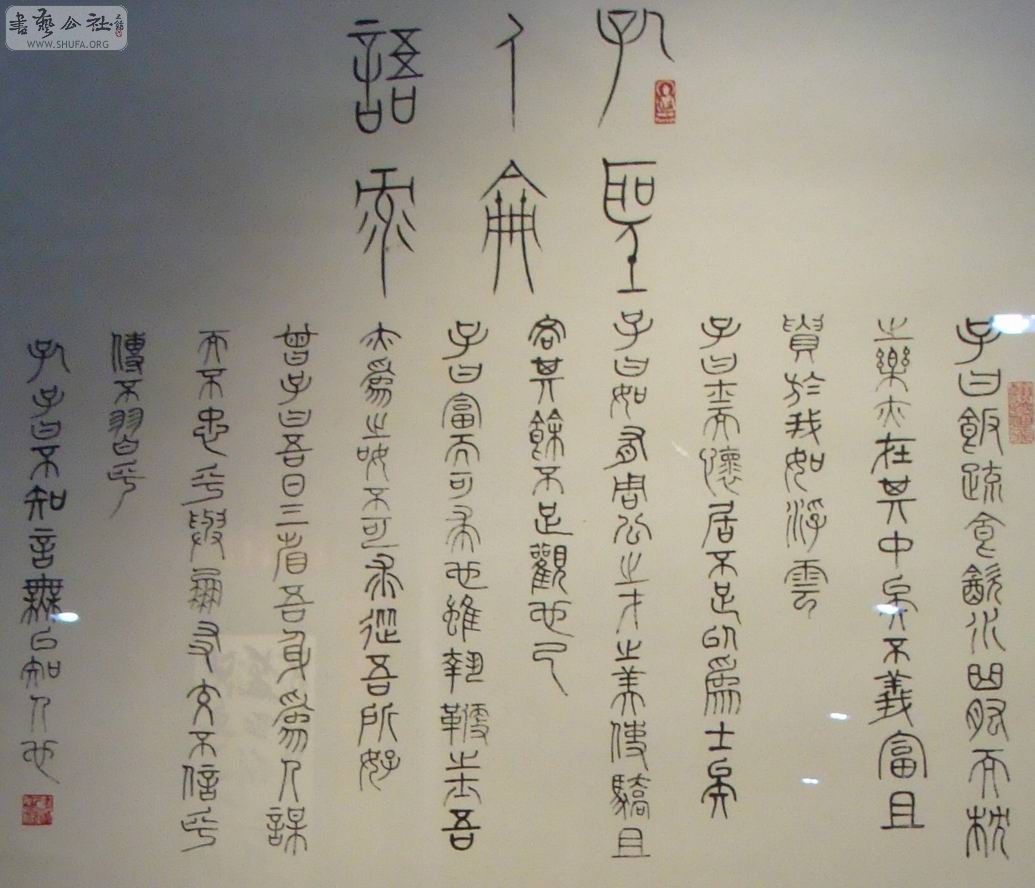 書藝公社
WWW.SHUFA.ORG
孔聖
人侖
語
子曰飯疏食飲水曲肱而枕
之樂亦在其中矣不義富且
貴於我如浮雲
子曰士而懷居不足以為士矣
子曰如有周公之才之美使驕且
吝其餘不足觀也已
子曰富而可求也雖執鞭之士吾
亦為之如不可求從吾所好
曾子曰吾日三省吾身為人謀
而不忠乎與朋友交不信乎
傳不習乎
孔子曰不知言無以知人也